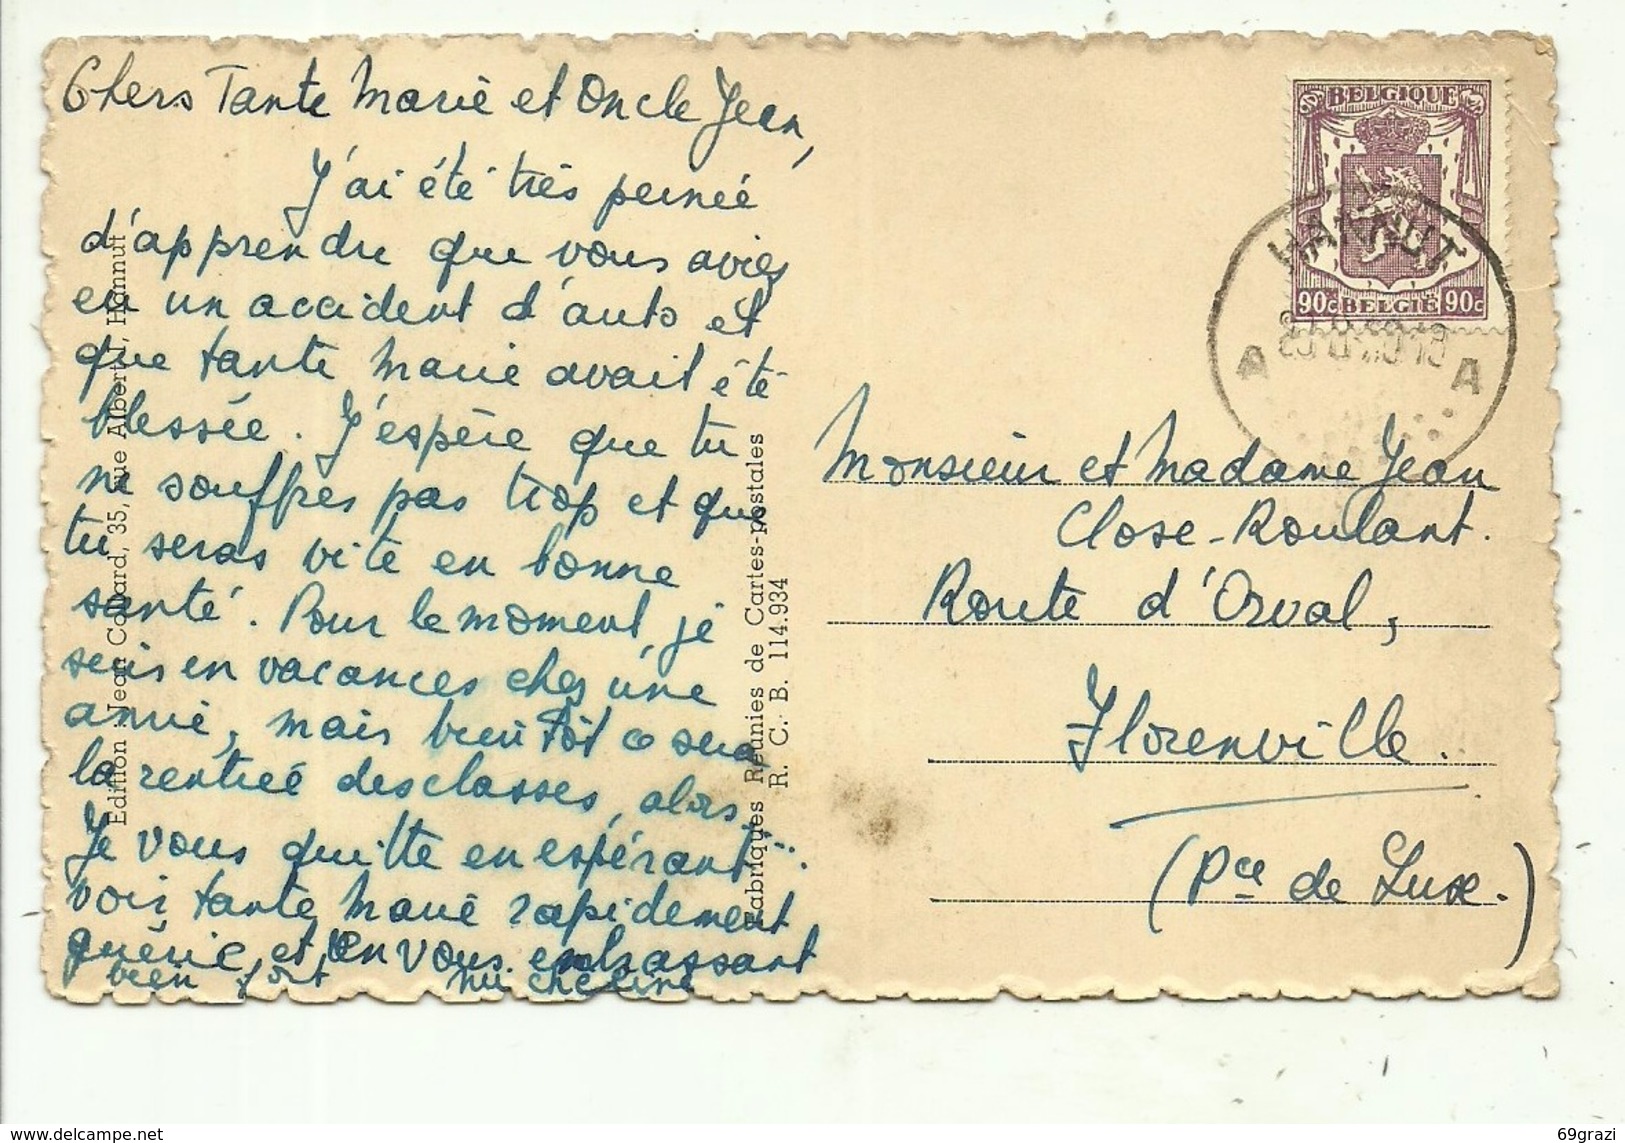 Chers Tante Marie et Oncle Jean,
J'ai été très peinée
d'apprendre que vous aviez
eu un accident d'auto et
que tante Marie avait été
blessée. J'espère que tu
ne souffres pas trop et que
tu seras vite en bonne
santé. Pour le moment, je
suis en vacances chez une
amie, mais bientôt ce sera
la rentrée des classes, alors...
Je vous quitte en espérant
voir tante Marie rapidement
guérie et en vous embrassant
bien fort
Edition : Jean Collard, 35, rue Albert I, Hannut
Fabriques Réunies de Cartes-postales
R. C. B. 114.934
BELGIQUE
90c BELGIE 90c
HANNUT
A A
Monsieur et Madame Jean
Close-Roulant.
Route d'Orval,
Florenville.
(Pce de Lux.)
69grazi
www.delcampe.net